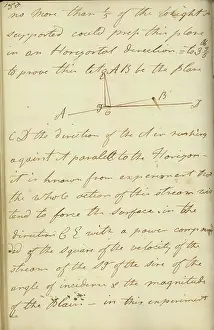 no More than 1/3 of the Weight
supported could press this plane
in an Horizontal direction
to prove this let A B be the plane
B
A
D
C D the direction of the Air rushing
against A parallel to the Horizon
it is known from experiment that
the whole action of this stream
tend to force the surface in the
direction C E with a power compound
of the square of the velocity of the
stream of the Sqr of the sine of the
angle of incidence & the magnitude
of the Plain — in this experiment